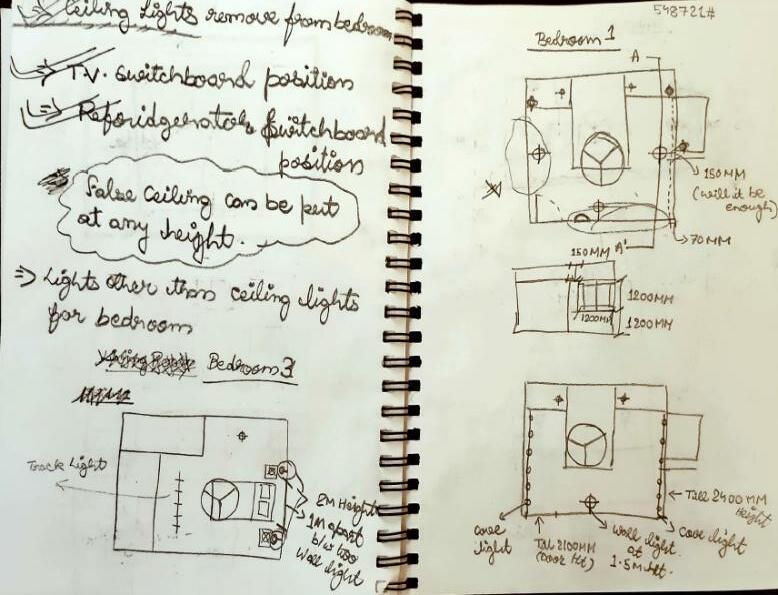 ⇒ Ceiling Lights remove from bedroom
⇒ T.V. switchboard position
⇒ Reforidgerator switchboard
position
False ceiling can be put
at any height.
⇒ Lights other than ceiling lights
for bedroom
Bedroom 3
Track Light
2M Height
1M apart
b/w two
Wall light
548721#
Bedroom 1
A
150MM
(will it be
enough)
70MM
A'
150MM
1200MM
1200MM
1200MM
Till 2400MM
Height
cove
light
Till 2100MM
(Door Ht)
wall light
at
1.5M Ht.
Cove light